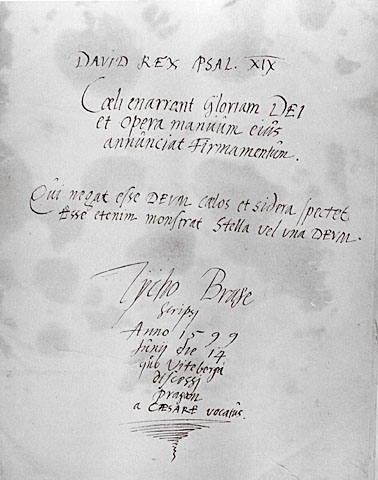 DAVID REX PSAL. XIX
Cœli enarrant Gloriam DEI
et opera manuũm eiũs
annũnciat Firmamentũm.
Qũi negat esse DEVM cælos et sidera spectet
Esse etenim monstrat Stella vel vna DEVM.
Tÿcho Brahe
scripsi
Anno 1599
Jũnij die 14
qũo Vitebergâ
discessi
Pragam
a CÆSARE vocatũs.